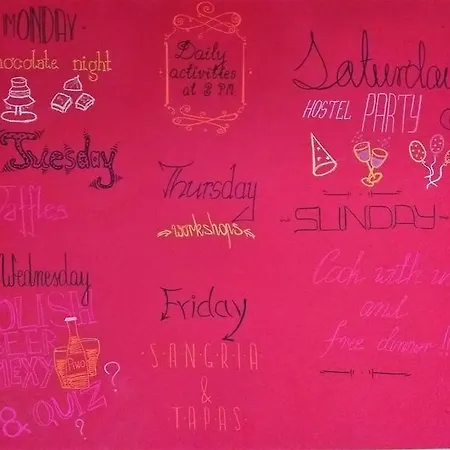 MONDAY
chocolate night
Tuesday
Waffles
Wednesday
POLISH
BEER
Piwo
& QUIZ ?
?
Daily
activities
at 8 PM
Thursday
workshops
Friday
SANGRIA
&
TAPAS
Saturday
HOSTEL PARTY
SUNDAY
Cook with us
and
free dinner!!